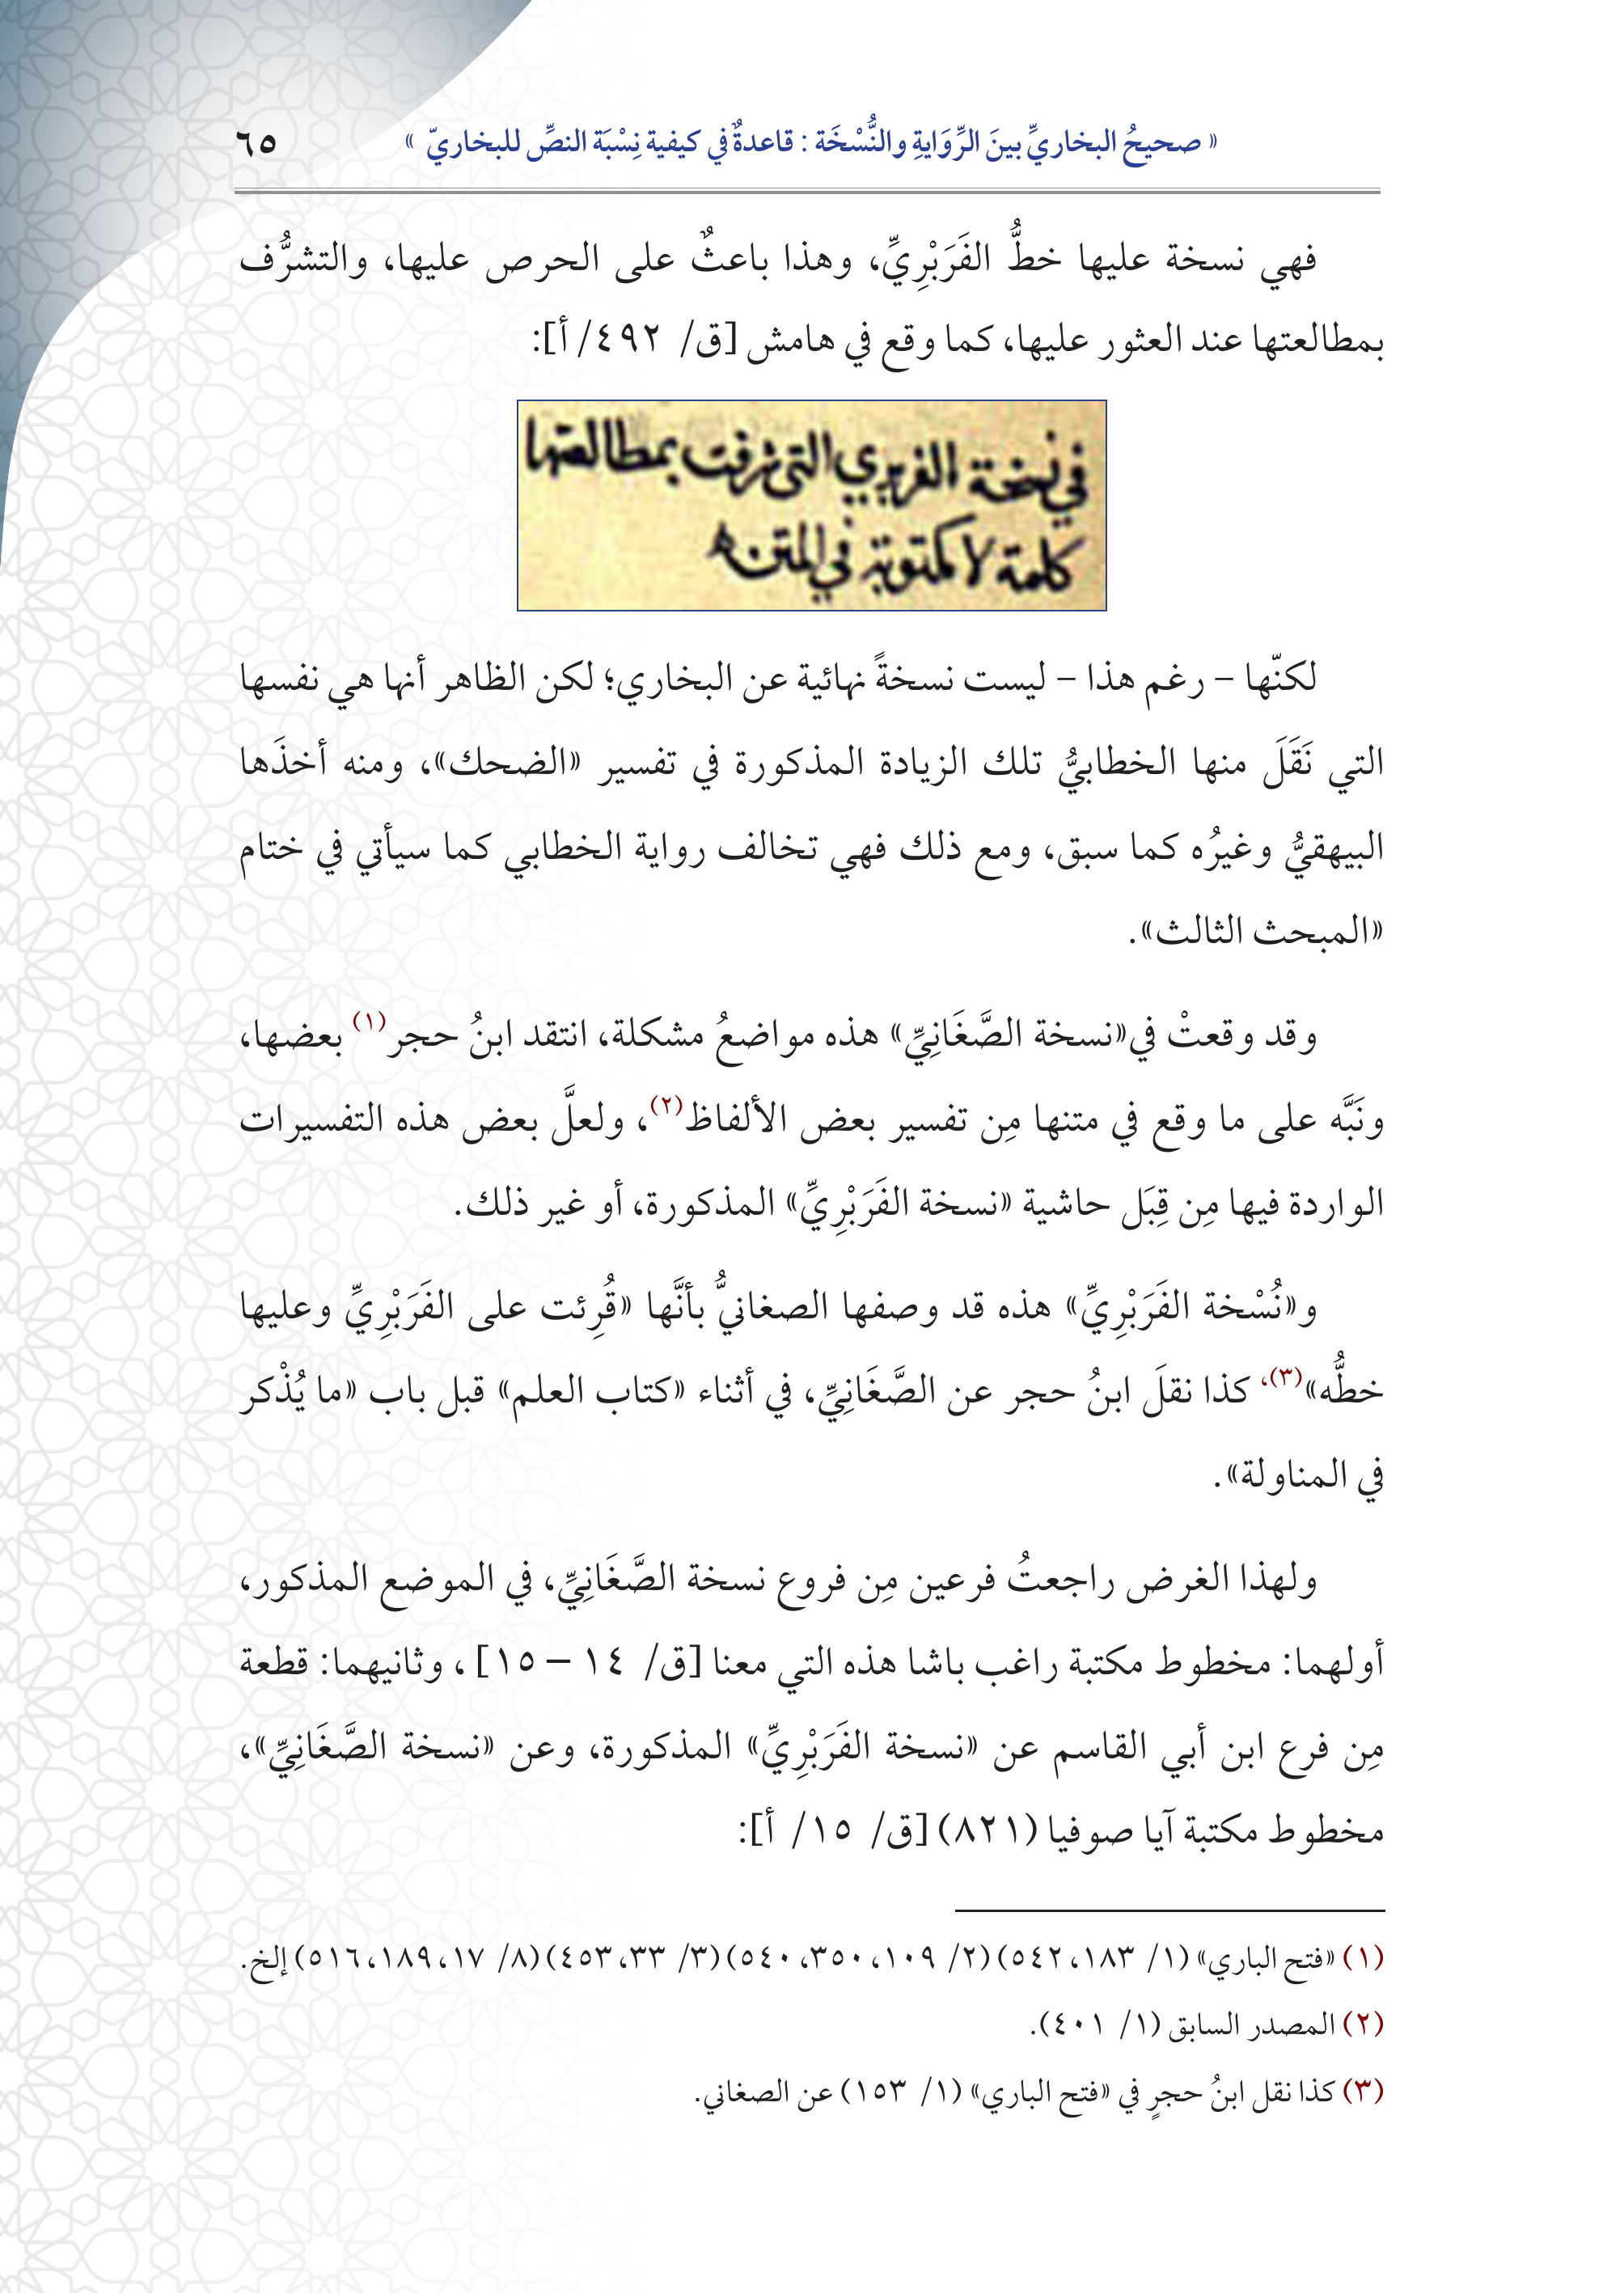 « صحيحُ البخاريِّ بينَ الرِّوَايةِ والنُّسْخَة : قاعدةٌ في كيفية نِسْبَة النصِّ للبخاريّ » ٦٥
فهي نسخة عليها خطُّ الفَرَبْرِيِّ، وهذا باعثٌ على الحرص عليها، والتشرُّف
بمطالعتها عند العثور عليها، كما وقع في هامش [ق/ ٤٩٢/ أ]:
في نسخة الفربري التي شرفت بمطالعتها
كلمة لا مكتوبة في المتن ه
لكنّها – رغم هذا – ليست نسخةً نهائية عن البخاري؛ لكن الظاهر أنها هي نفسها
التي نَقَلَ منها الخطابيُّ تلك الزيادة المذكورة في تفسير «الضحك»، ومنه أخذَها
البيهقيُّ وغيرُه كما سبق، ومع ذلك فهي تخالف رواية الخطابي كما سيأتي في ختام
«المبحث الثالث».
وقد وقعتْ في«نسخة الصَّغَانِيِّ» هذه مواضعُ مشكلة، انتقد ابنُ حجر(١) بعضها،
ونَبَّه على ما وقع في متنها مِن تفسير بعض الألفاظ(٢)، ولعلَّ بعض هذه التفسيرات
الواردة فيها مِن قِبَل حاشية «نسخة الفَرَبْرِيِّ» المذكورة، أو غير ذلك.
و«نُسْخة الفَرَبْرِيِّ» هذه قد وصفها الصغانيُّ بأنَّها «قُرِئت على الفَرَبْرِيِّ وعليها
خطُّه»(٣)، كذا نقلَ ابنُ حجر عن الصَّغَانِيِّ، في أثناء «كتاب العلم» قبل باب «ما يُذْكر
في المناولة».
ولهذا الغرض راجعتُ فرعين مِن فروع نسخة الصَّغَانِيِّ، في الموضع المذكور،
أولهما: مخطوط مكتبة راغب باشا هذه التي معنا [ق/ ١٤ – ١٥] ، وثانيهما: قطعة
مِن فرع ابن أبي القاسم عن «نسخة الفَرَبْرِيِّ» المذكورة، وعن «نسخة الصَّغَانِيِّ»،
مخطوط مكتبة آيا صوفيا (٨٢١) [ق/ ١٥/ أ]:
(١) «فتح الباري» (١/ ١٨٣، ٥٤٢) (٢/ ١٠٩، ٣٥٠، ٥٤٠) (٣/ ٣٣، ٤٥٣) (٨/ ١٧، ١٨٩، ٥١٦) إلخ.
(٢) المصدر السابق (١/ ٤٠١).
(٣) كذا نقل ابنُ حجرٍ في «فتح الباري» (١/ ١٥٣) عن الصغاني.